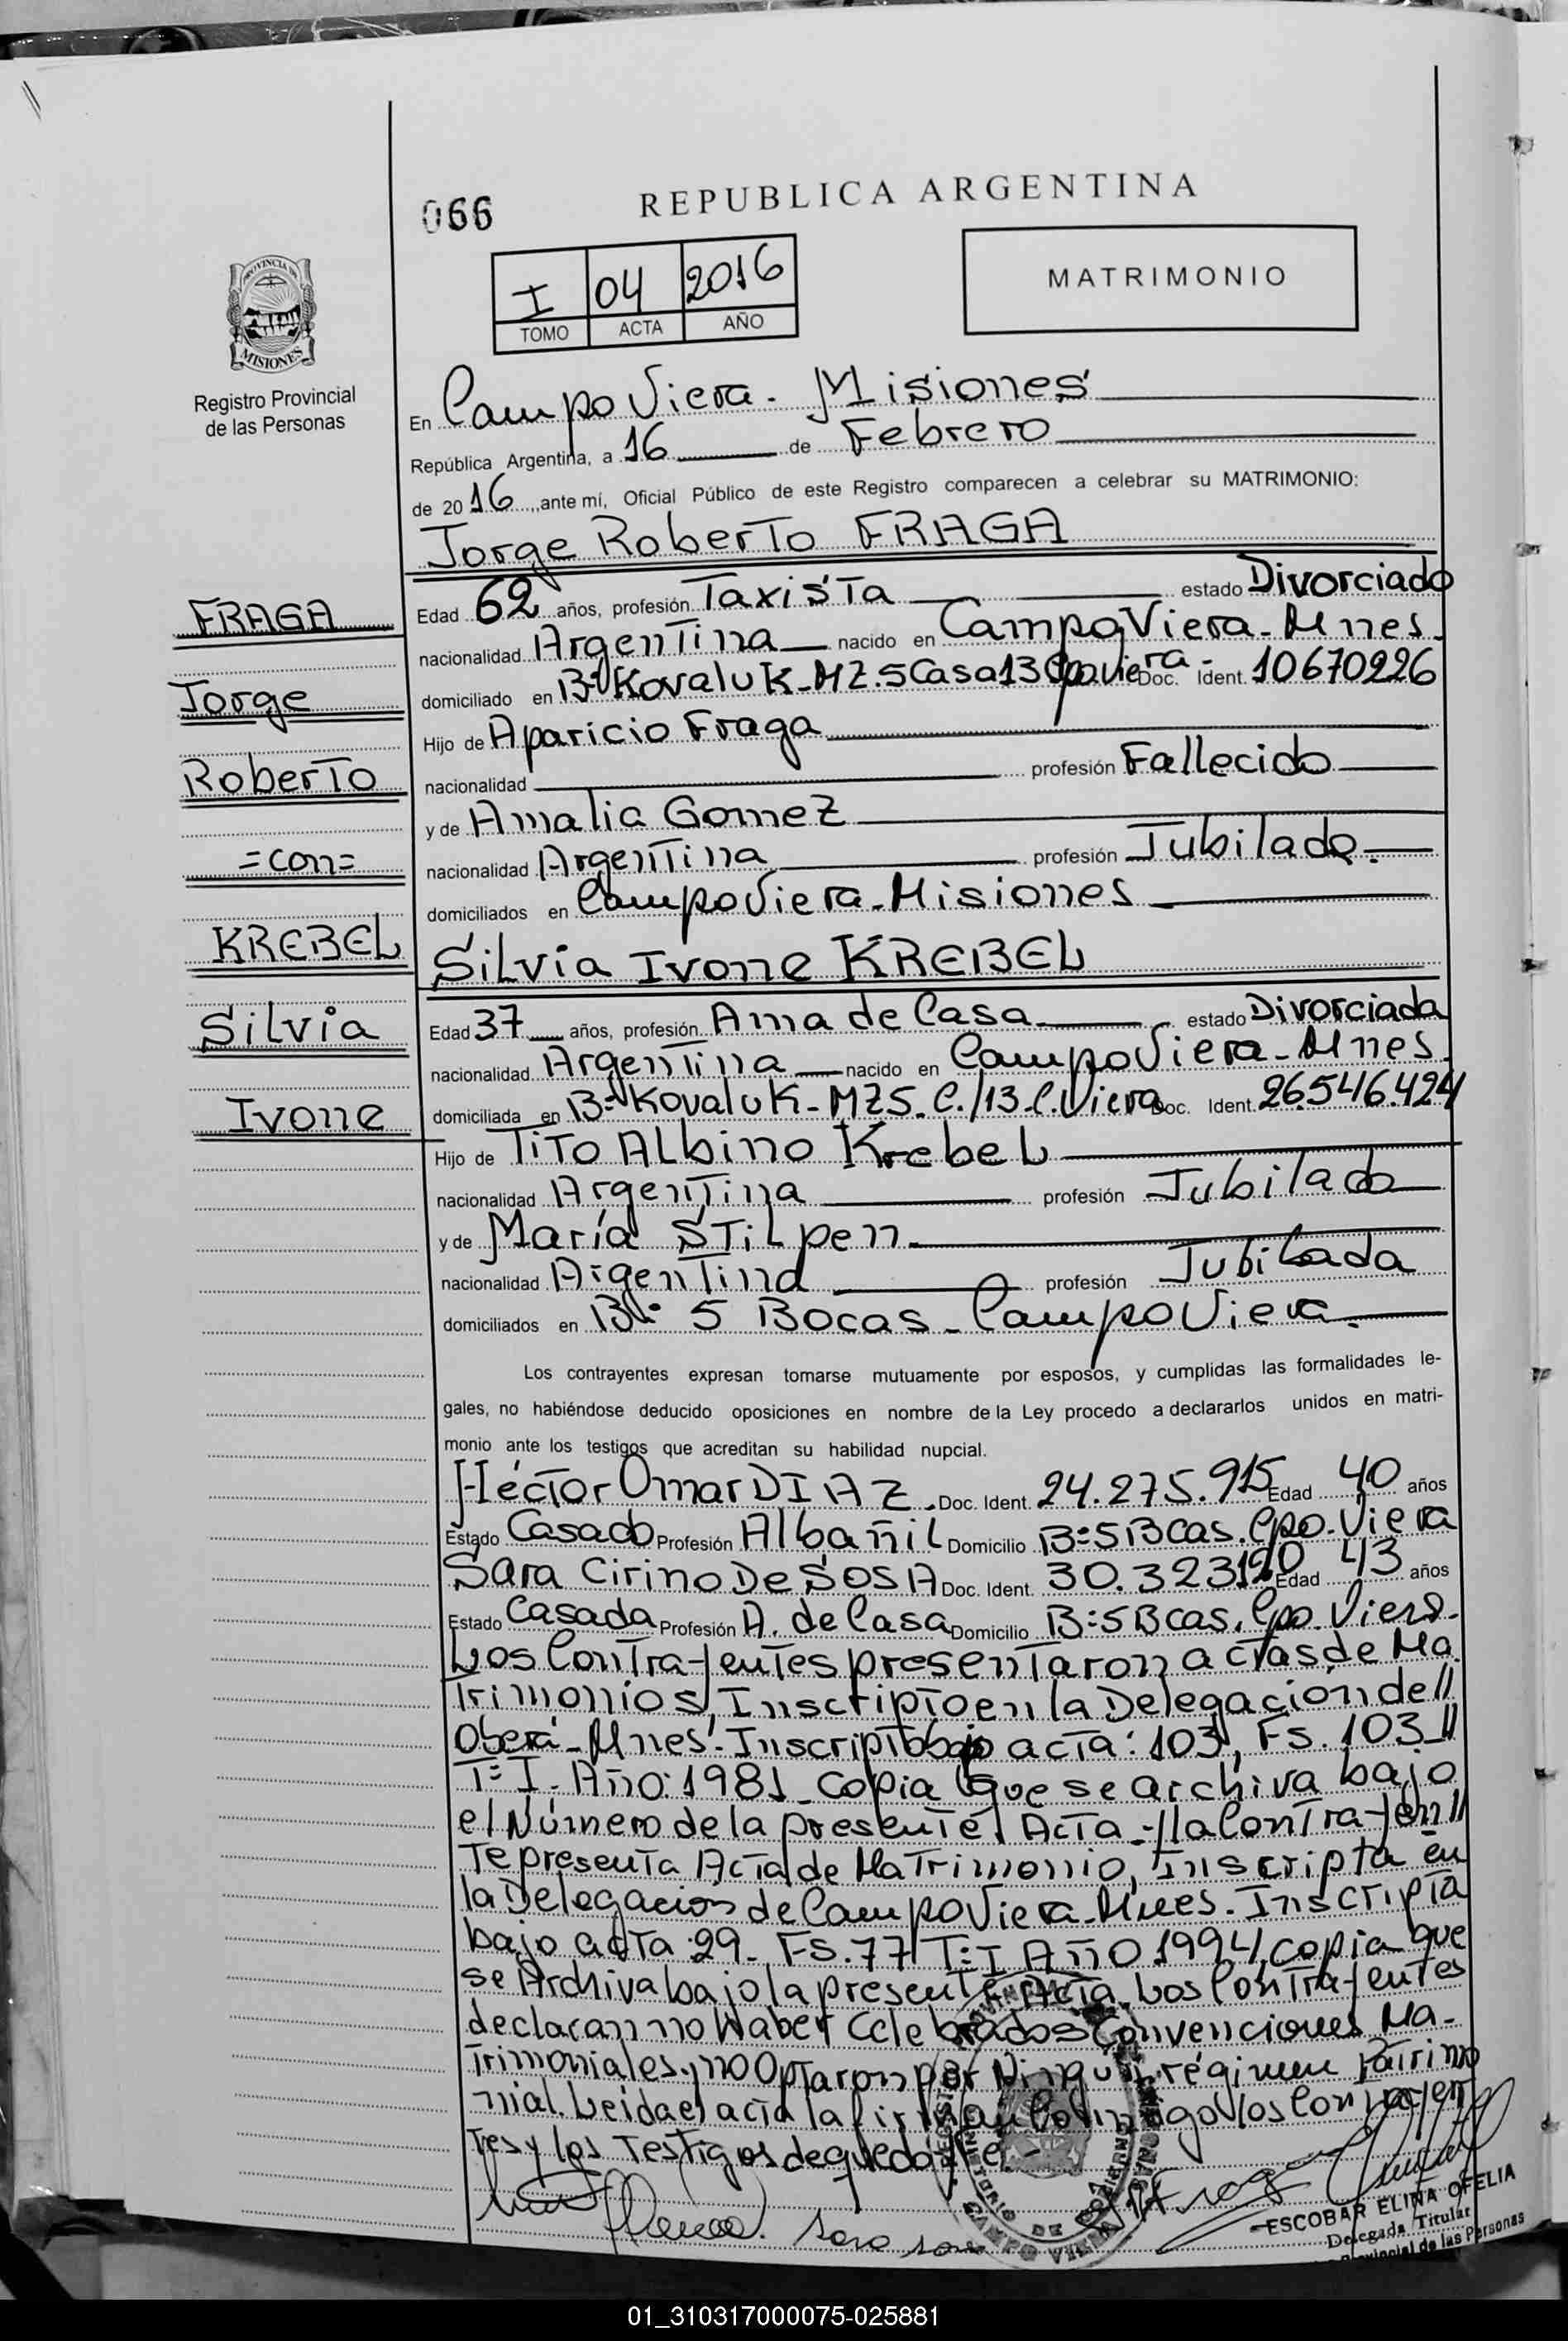 066
REPUBLICA ARGENTINA
I 04 2016
TOMO ACTA AÑO
MATRIMONIO
PROVINCIA DE
MISIONES
Registro Provincial
de las Personas
En Campo Viera. Misiones
República Argentina, a 16 de Febrero
de 2016, ante mí, Oficial Público de este Registro comparecen a celebrar su MATRIMONIO:
Jorge Roberto FRAGA
FRAGA
Jorge
Roberto
=con=
KREBEL
Silvia
Ivone
Edad 62 años, profesión Taxista estado Divorciado
nacionalidad Argentina nacido en Campo Viera - Mnes.
domiciliado en B° Kovaluk - MZ. 5 Casa 13 Cpo. Viera - Doc. Ident. 10670226
Hijo de Aparicio Fraga
nacionalidad profesión Fallecido
y de Amalia Gomez
nacionalidad Argentina profesión Jubilado.
domiciliados en Campo Viera - Misiones
Silvia Ivone KREBEL
Edad 37 años, profesión Ama de Casa estado Divorciada
nacionalidad Argentina nacido en Campo Viera - Mnes.
domiciliada en B° Kovaluk - MZ 5. C./13 - C. Viera Doc. Ident. 26.546.424
Hijo de Tito Albino Krebel
nacionalidad Argentina profesión Jubilado
y de María Stilpen
nacionalidad Argentina profesión Jubilada
domiciliados en B°: 5 Bocas - Campo Viera.
Los contrayentes expresan tomarse mutuamente por esposos, y cumplidas las formalidades le-
gales, no habiéndose deducido oposiciones en nombre de la Ley procedo a declararlos unidos en matri-
monio ante los testigos que acreditan su habilidad nupcial.
Héctor Omar DIAZ. Doc. Ident. 24.275.915 Edad 40 años
Estado Casado Profesión Albañil Domicilio B: 5 Bcas. Cpo. Viera
Sara Cirino De SOSA Doc. Ident. 30.323.120 Edad 43 años
Estado Casada Profesión A. de Casa Domicilio B: 5 Bcas. Cpo. Viera.
Los Contrayentes presentaron actas de Ma
trimonios, Inscripto en la Delegacion de //
Oberá - Mnes. Inscripto bajo acta: 103, Fs. 103 //
T: I - Año: 1981 - copia que se archiva bajo
el Número de la presente Acta - // la Contrayen //
te presenta Acta de Matrimonio, Inscripta en
la Delegacion de Campo Viera - Mnes. Inscripta
bajo acta: 29 - Fs. 77 T: I Año 1994, copia que
se Archiva bajo la presente Acta. Los Contrayentes
declaran no Haber Celebrados Convenciones Ma-
trimoniales, y no Optaron por Ningun régimen Patrimo
nial. Leida el acta la firman Conmigo los Contrayen
tes y los Testigos de que doy fe. -
Sara
J R Fraga
ESCOBAR ELINA OFELIA
Delegada Titular
Provincial de las Personas
01_310317000075-025881